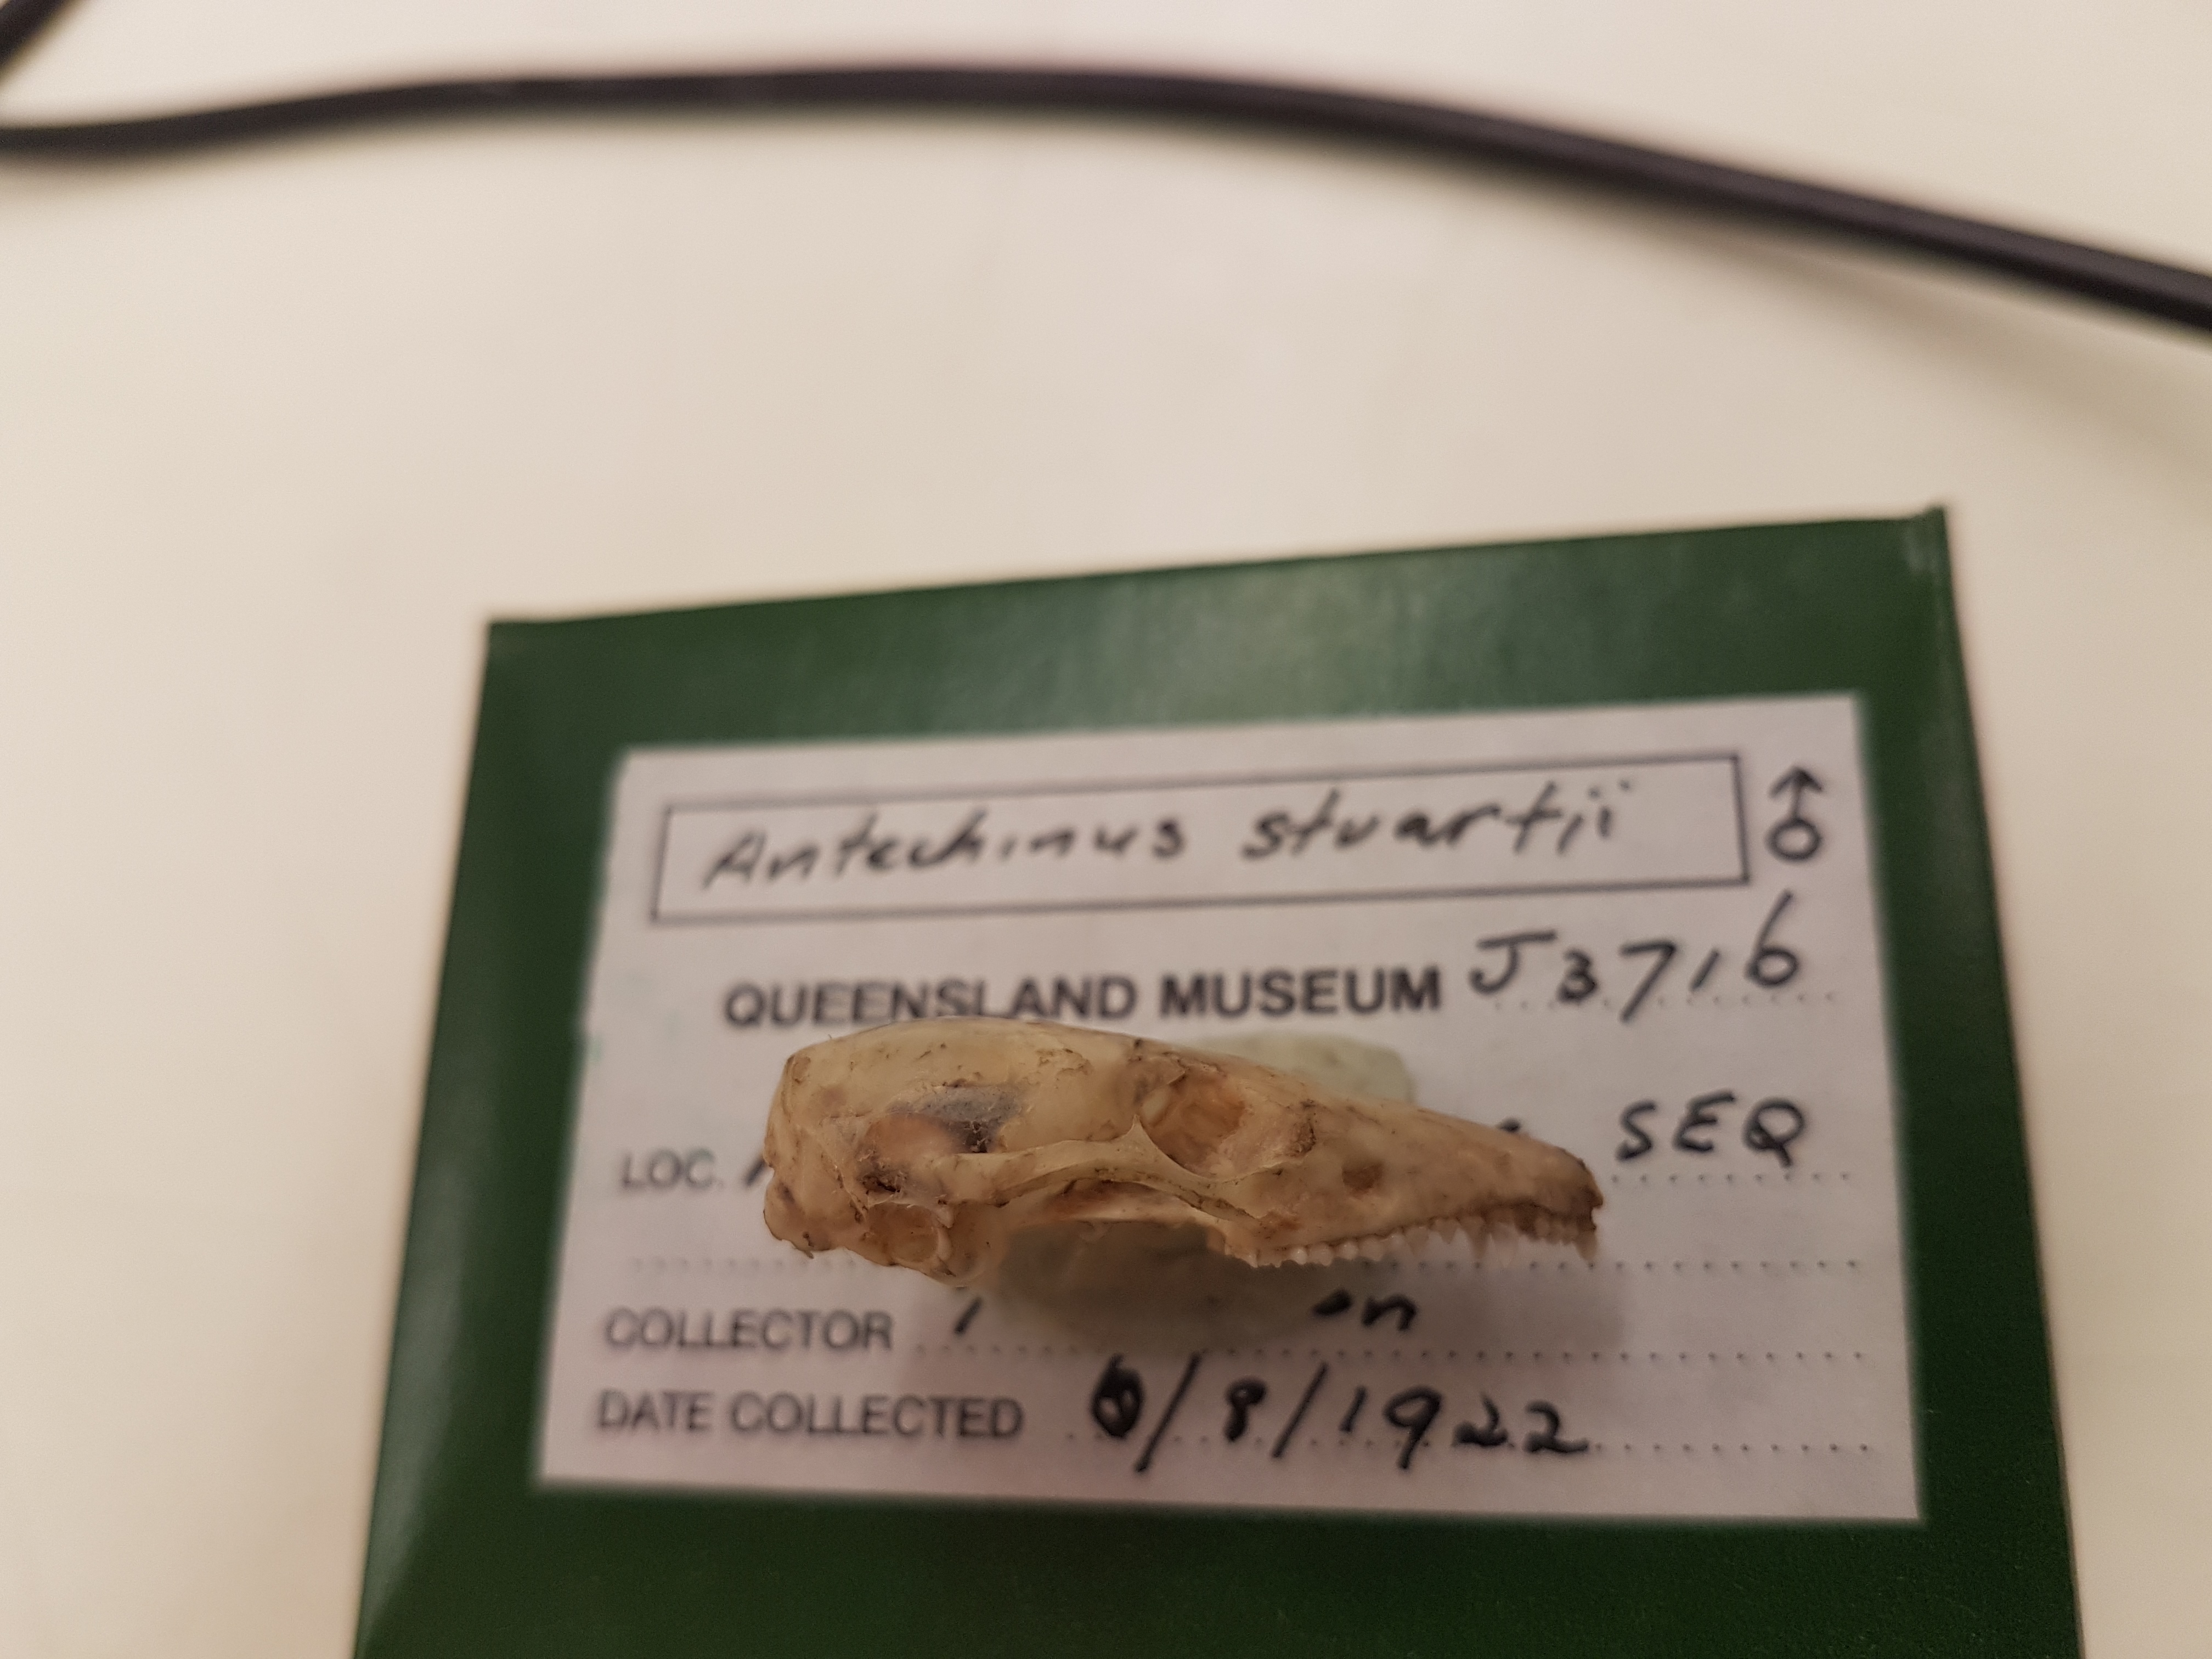 Antechinus stuartii ♂
QUEENSLAND MUSEUM J3716
LOC. SEQ
COLLECTOR
DATE COLLECTED 6/8/1922